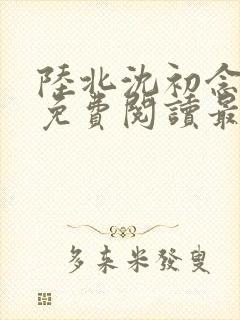 陸北沈初念
免費閱讀最
多来米發叟